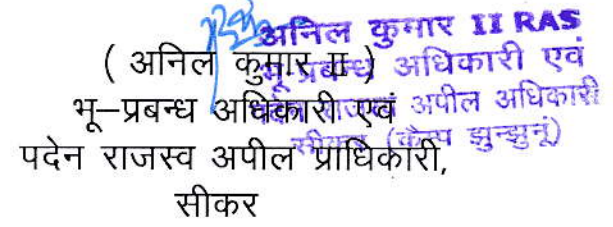 अनिल कुमार II RAS
भू प्रबन्ध अधिकारी एवं
राजस्व अपील अधिकारी
सीकर (कैम्प झुन्झुनूं)
( अनिल कुमार II )
भू–प्रबन्ध अधिकारी एवं
पदेन राजस्व अपील प्राधिकारी,
सीकर